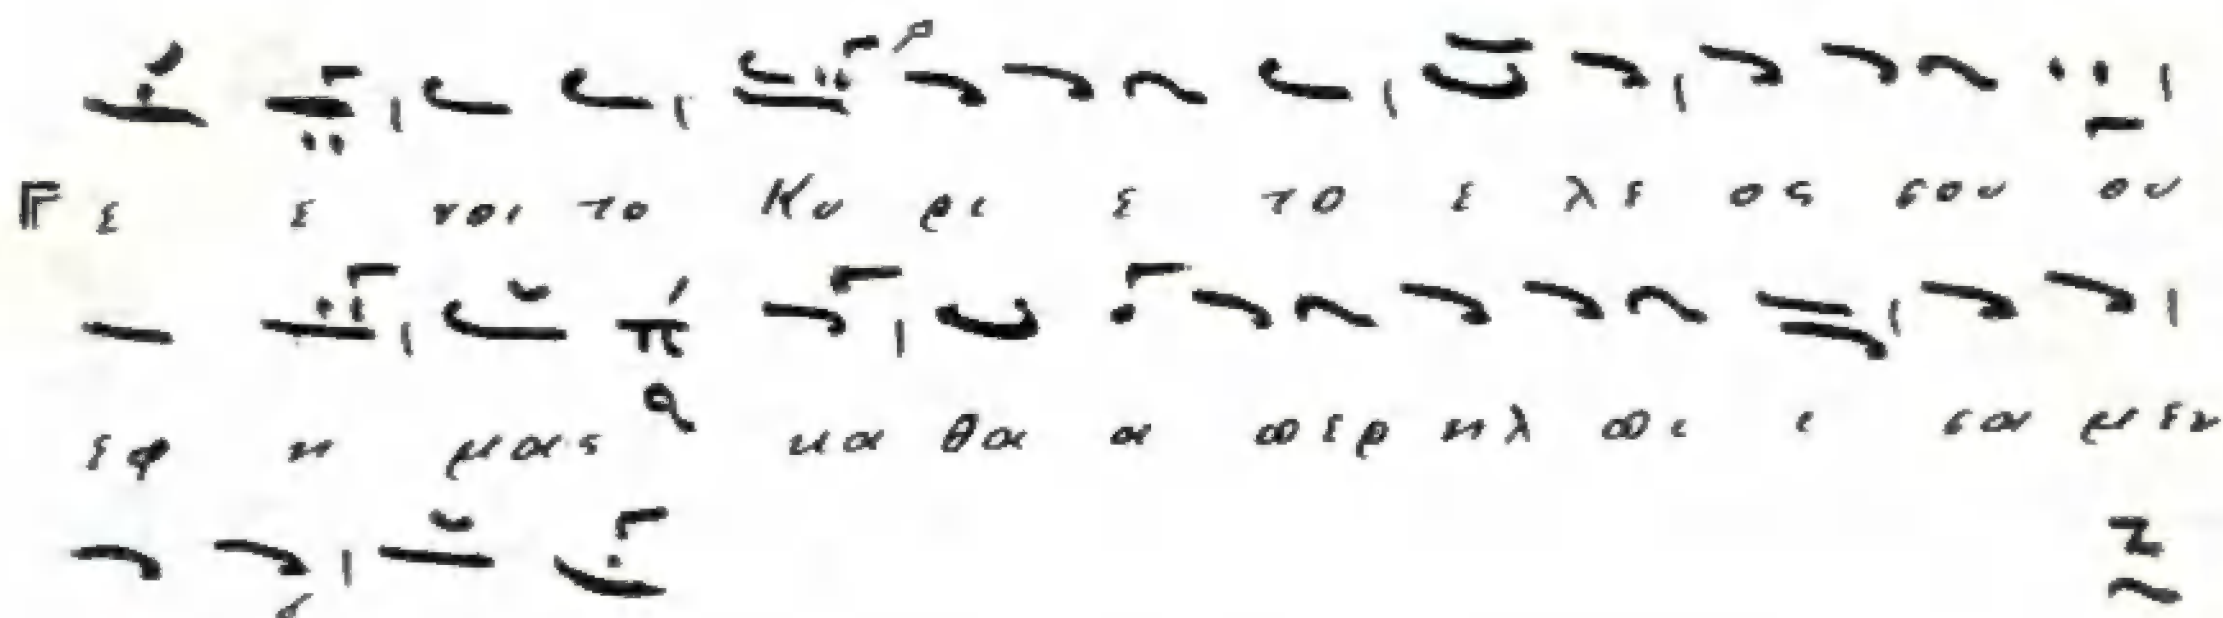 Γε ε νοι το Κυ ρι ε το ε λε ος σου ου
εφ η μας π α κα θα α περ ηλ πι ι σα μεν
Ζ